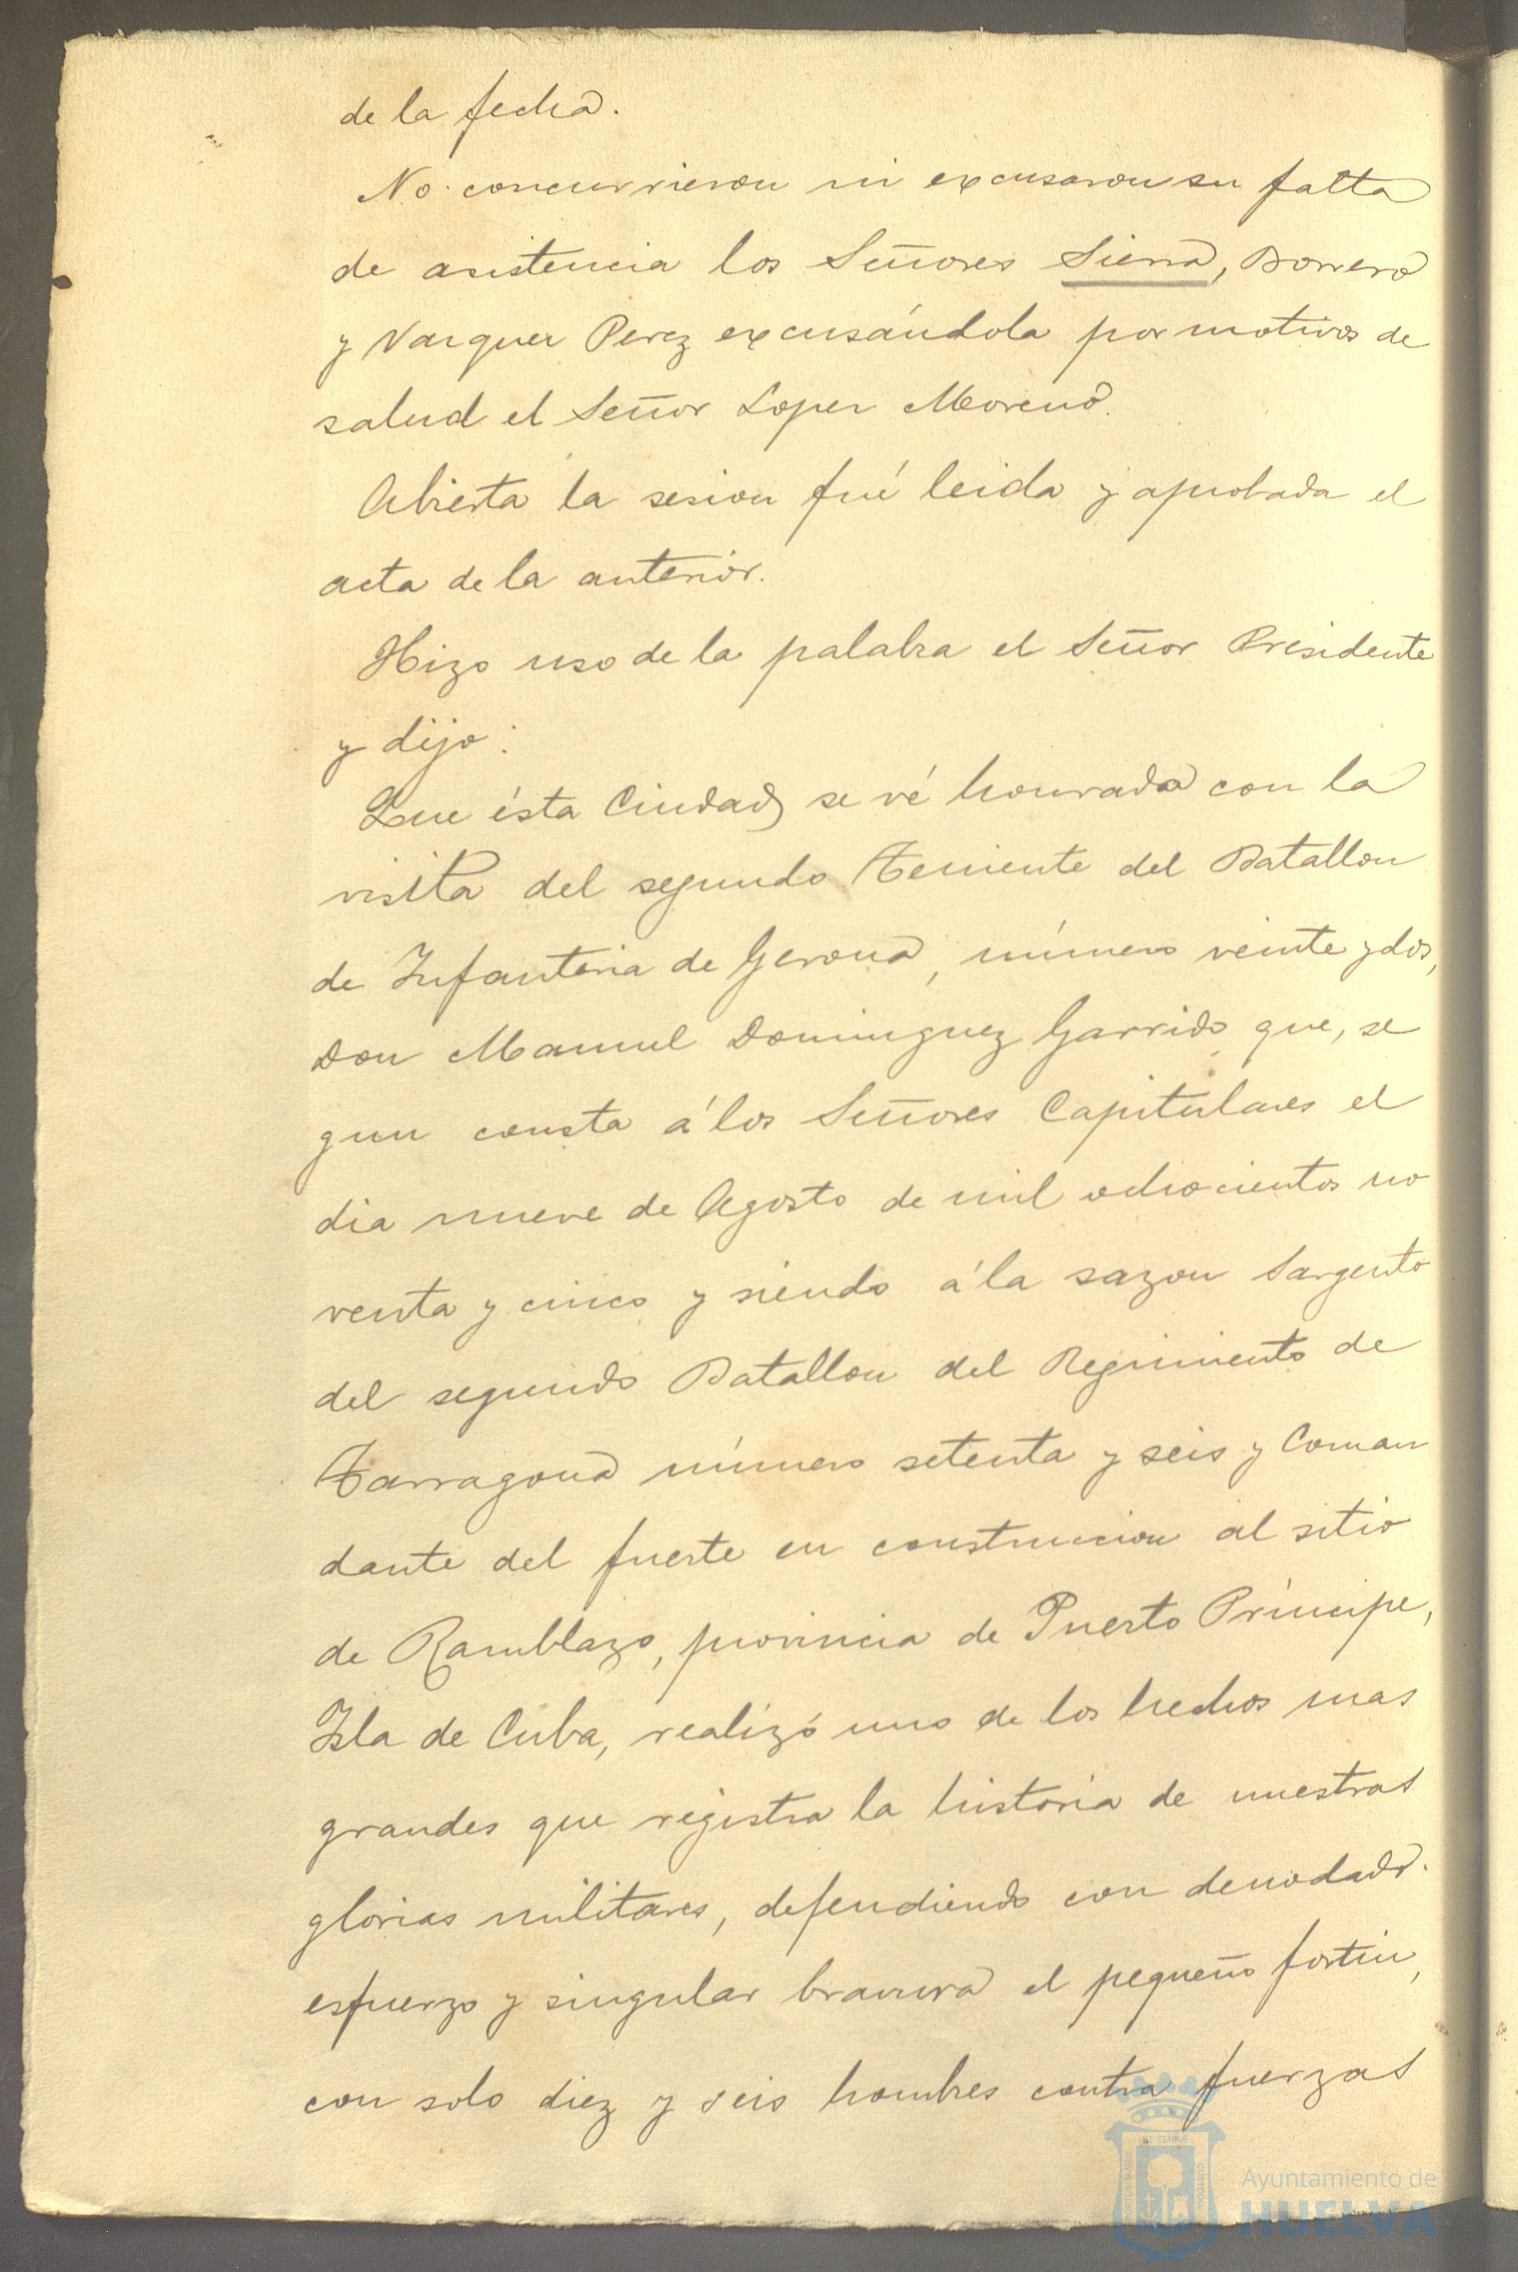 de la fecha.
No concurrieron ni excusaron su falta
de asistencia los Señores Sierra, Borrero
y Vazquez Perez excusándola por motivos de
salud el Señor Lopez Moreno.
Abierta la sesion fué leida y aprobada el
acta de la anterior.
Hizo uso de la palabra el Señor Presidente
y dijo:
Que ésta Ciudad se vé honrada con la
visita del segundo Teniente del Batallon
de Infanteria de Gerona, número veinte y dos,
Don Manuel Dominguez Garrido que, se
gun consta á los Señores Capitulares el
dia nueve de Agosto de mil ochocientos no
venta y cinco y siendo á la sazon Sargento
del segundo Batallon del Regimiento de
Tarragona número setenta y seis y Coman
dante del fuerte en construccion al sitio
de Ramblazo, provincia de Puerto Príncipe,
Isla de Cuba, realizó uno de los hechos mas
grandes que registra la historia de nuestras
glorias militares, defendiendo con denodado
esfuerzo y singular bravura el pequeño fortin,
con solo diez y seis hombres contra fuerzas
Ayuntamiento de
HUELVA